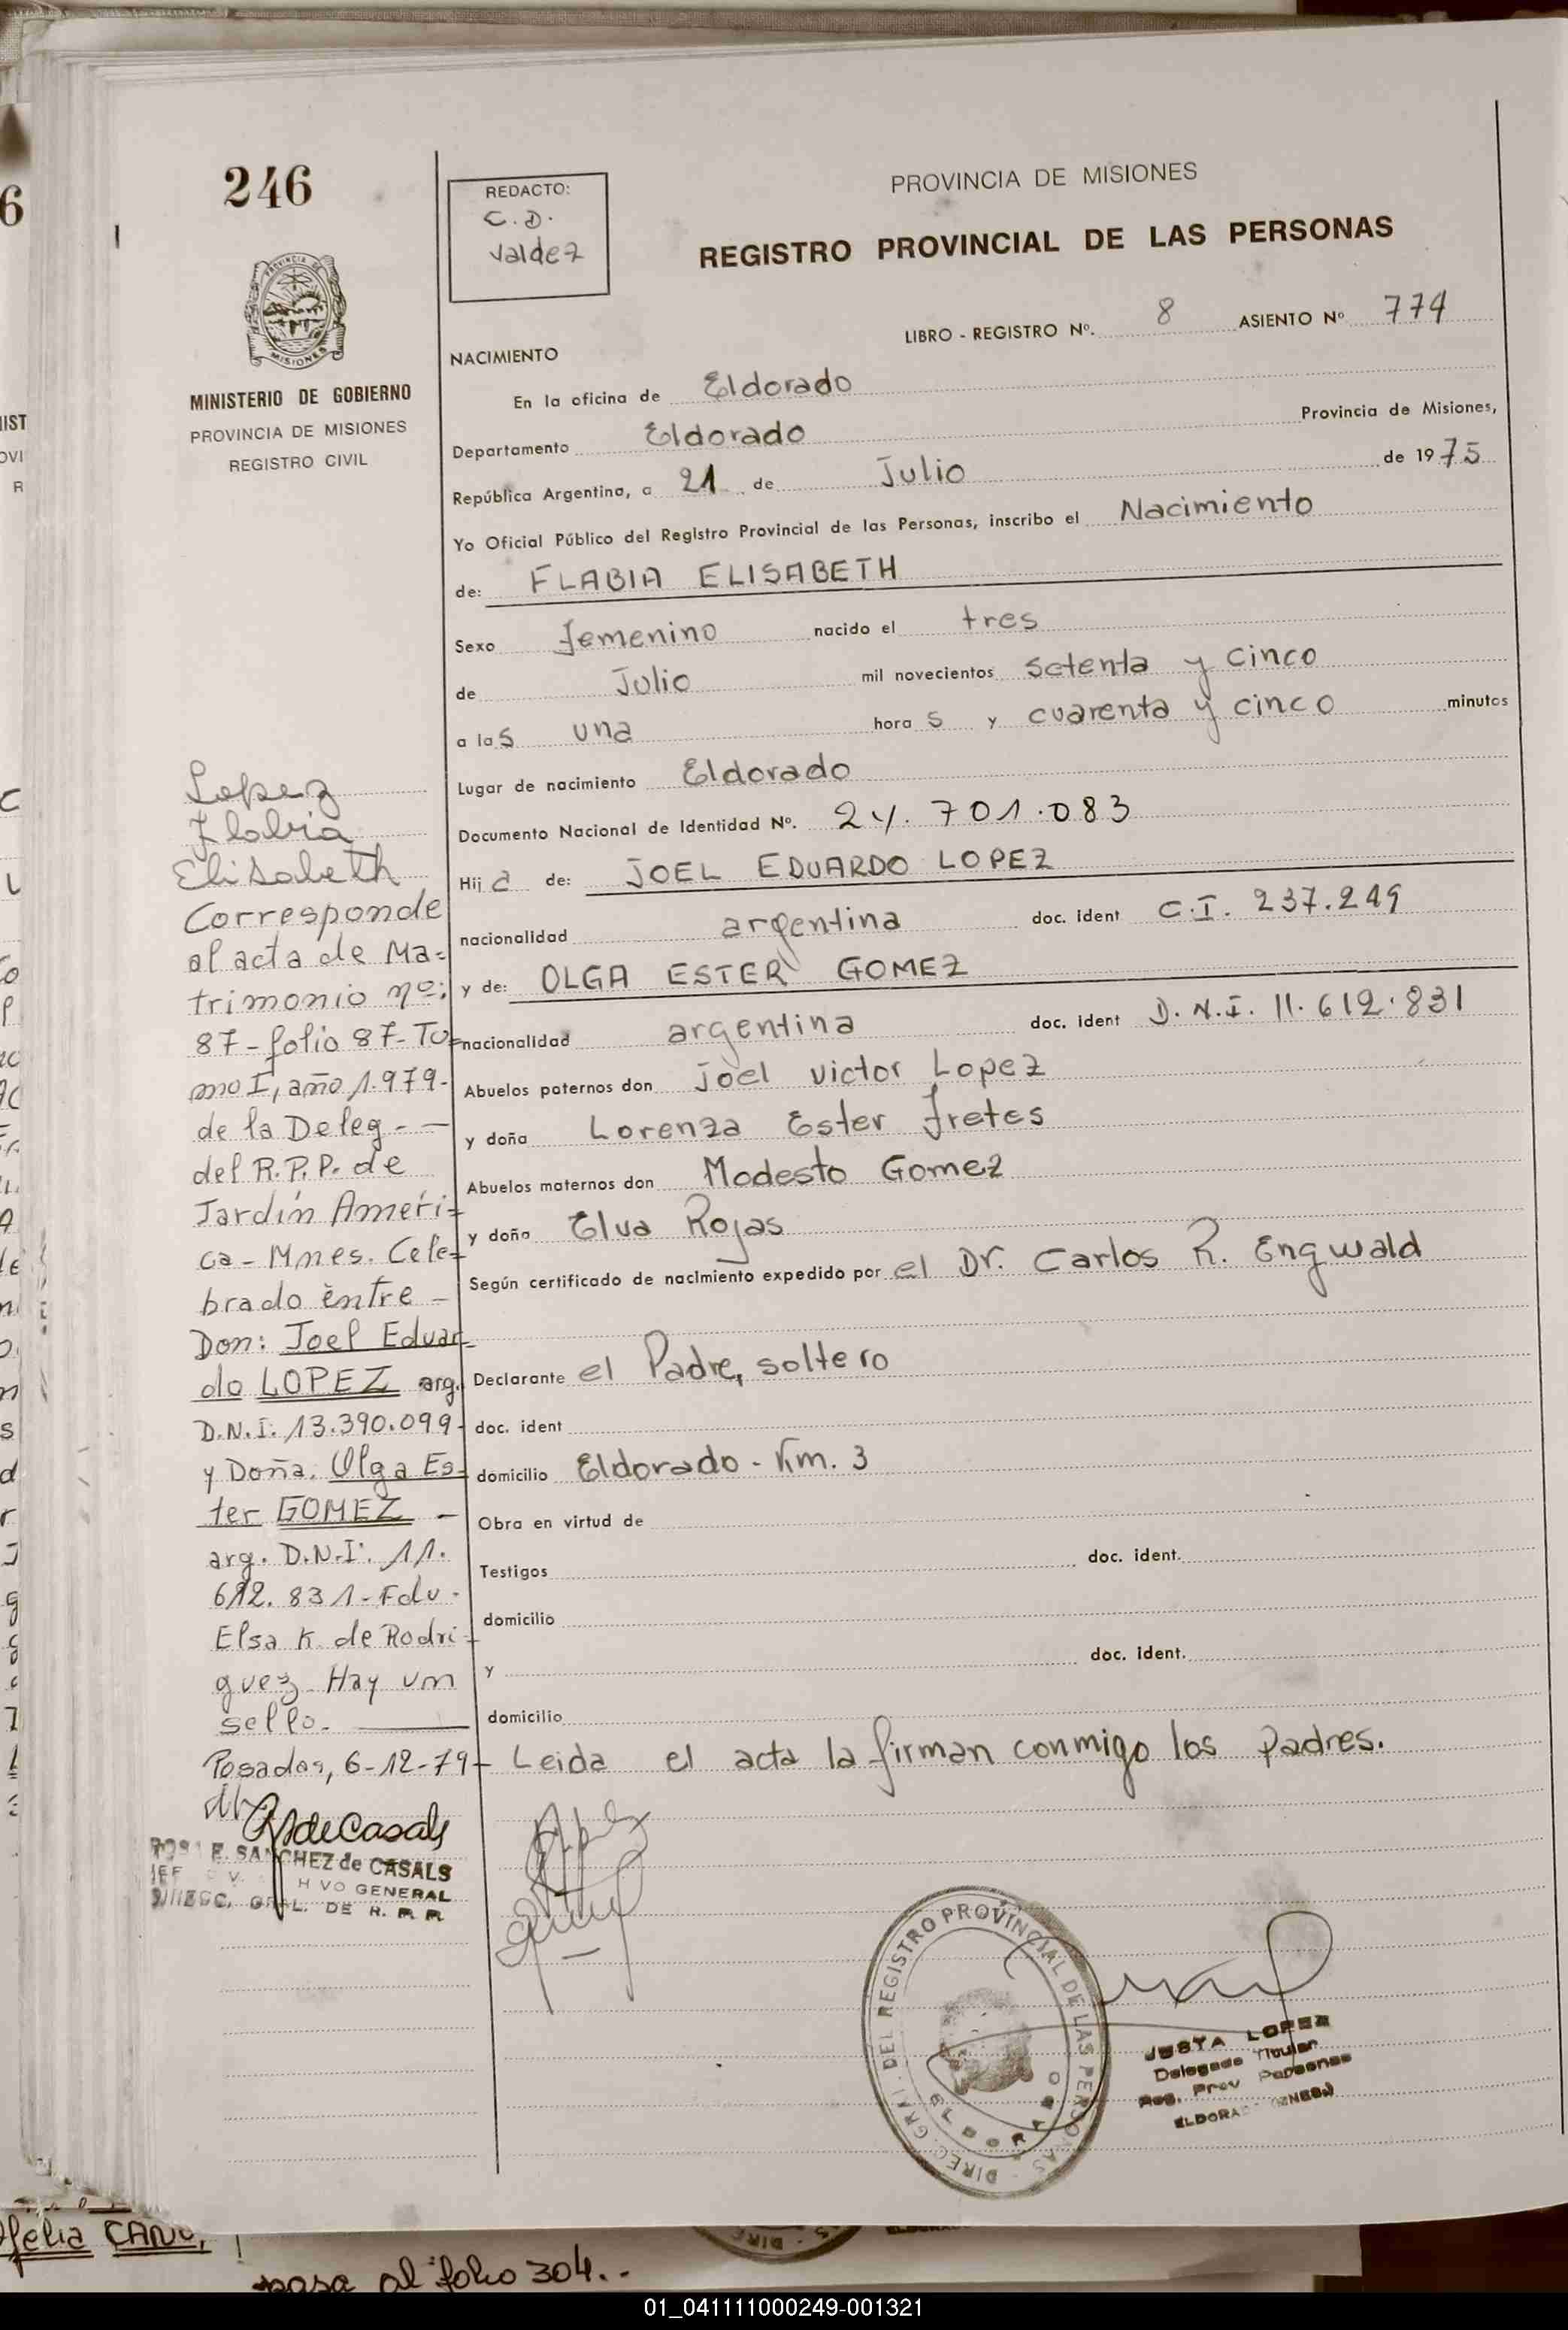 246
REDACTO:
C.D.
Valdez
PROVINCIA DE MISIONES
REGISTRO PROVINCIAL DE LAS PERSONAS
PROVINCIA DE
MISIONES
MINISTERIO DE GOBIERNO
PROVINCIA DE MISIONES
REGISTRO CIVIL
LIBRO - REGISTRO Nº. 8 ASIENTO Nº 774
NACIMIENTO
En la oficina de Eldorado
Departamento Eldorado Provincia de Misiones,
República Argentina, a 21 de Julio de 1975
Yo Oficial Público del Registro Provincial de las Personas, inscribo el Nacimiento
de: FLABIA ELISABETH
Sexo femenino nacido el tres
de Julio mil novecientos setenta y cinco
a las una horas y cuarenta y cinco minutos
Lugar de nacimiento Eldorado
Documento Nacional de Identidad Nº. 24.701.083
Hija de: JOEL EDUARDO LOPEZ
nacionalidad argentina doc. ident C.I. 237.249
y de: OLGA ESTER GOMEZ
nacionalidad argentina doc. ident D.N.I. 11.612.831
Abuelos paternos don Joel Victor Lopez
y doña Lorenza Ester Fretes
Abuelos maternos don Modesto Gomez
y doña Elva Rojas
Según certificado de nacimiento expedido por el Dr. Carlos R. Engwald
Declarante el Padre, soltero
doc. ident
domicilio Eldorado - Km. 3
Obra en virtud de
Testigos doc. ident.
domicilio
y doc. ident.
domicilio
Leida el acta la firman conmigo los padres.
Lopez
Flabia
Elisabeth
Corresponde
al acta de Ma=
trimonio nº:
87-folio 87-To=
mo I, año 1.979-
de la Deleg - —
del R.P.P. de
Jardín Améri=
ca - Mnes. Cele=
brado entre -
Don: Joel Eduar-
do LOPEZ arg.
D.N.I: 13.390.099-
y Doña. Olga Es-
ter GOMEZ -
arg. D.N.I. 11.
612.831-Fdo.
Elsa K. de Rodri-
guez. Hay un
sello.
Posadas, 6-12-79-
RSdeCasals
E. SANCHEZ de CASALS
GENERAL
GRAL. DE R. P. P.
DIREC. GRAL. DEL REGISTRO PROVINCIAL DE LAS PERSONAS
ELDORADO
JUSTA LOPEZ
Delegado Titular
Reg. Prov Personas
ELDORADO
Ofelia CANO,
pasa al folio 304..
01_041111000249-001321